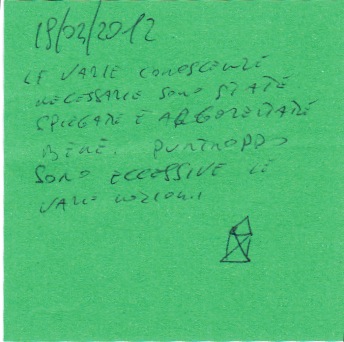 18/02/2012
LE VARIE CONOSCENZE
NECESSARIE SONO STATE
SPIEGATE E ARGOMENTATE
BENE. PURTROPPO
SONO ECCESSIVE LE
VARIE NOZIONI